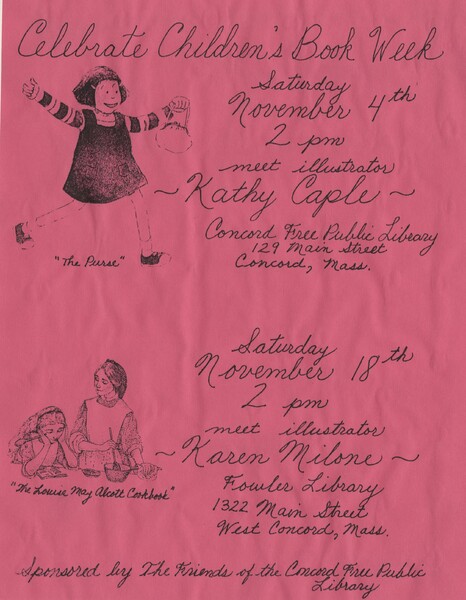 Celebrate Children's Book Week
Saturday
November 4th
2 pm
meet illustrator
~ Kathy Caple ~
Concord Free Public Library
129 Main Street
Concord, Mass.
"The Purse"
Saturday
November 18th
2 pm
meet illustrator
~ Karen Milone ~
Fowler Library
1322 Main Street
West Concord, Mass.
"The Louisa May Alcott Cookbook"
Sponsored by The Friends of the Concord Free Public
Library